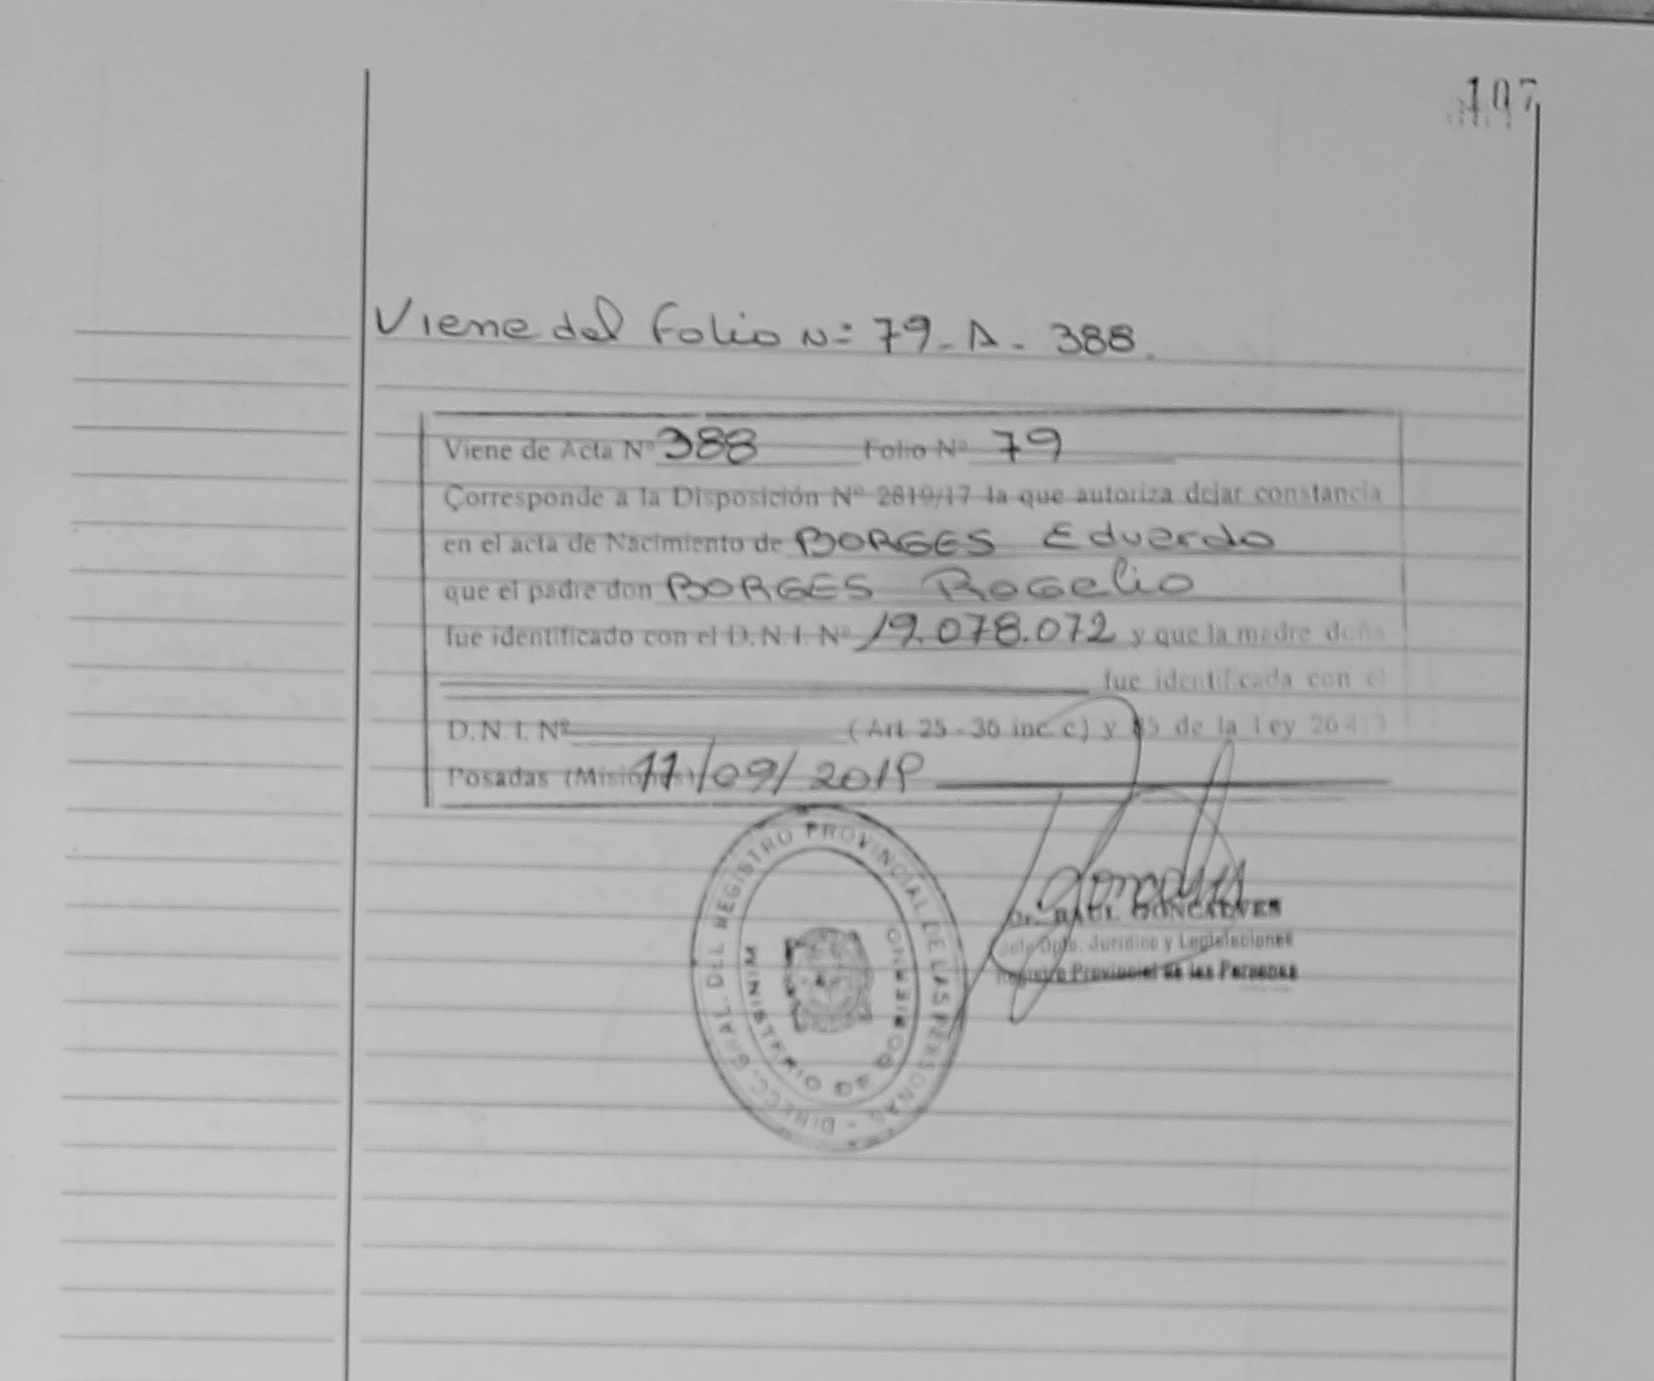 107
Viene del Folio Nº 79 - A - 388.
Viene de Acta Nº 388 Folio Nº 79
Corresponde a la Disposición Nº 2819/17 la que autoriza dejar constancia
en el acta de Nacimiento de BORGES Eduardo
que el padre don BORGES Rogelio
fue identificado con el D.N.I. Nº 19.078.072 y que la madre doña
fue identificada con el
D.N.I. Nº (Art. 25 - 36 inc. c) y 85 de la Ley 26413
Posadas (Misiones) 11/09/2019
DIRECC. GRAL. DEL REGISTRO PROVINCIAL DE LAS PERSONAS -
MINISTERIO DE GOBIERNO
Dr. RAUL GONCALVES
Jefe Dpto. Jurídico y Legislaciones
Registro Provincial de las Personas